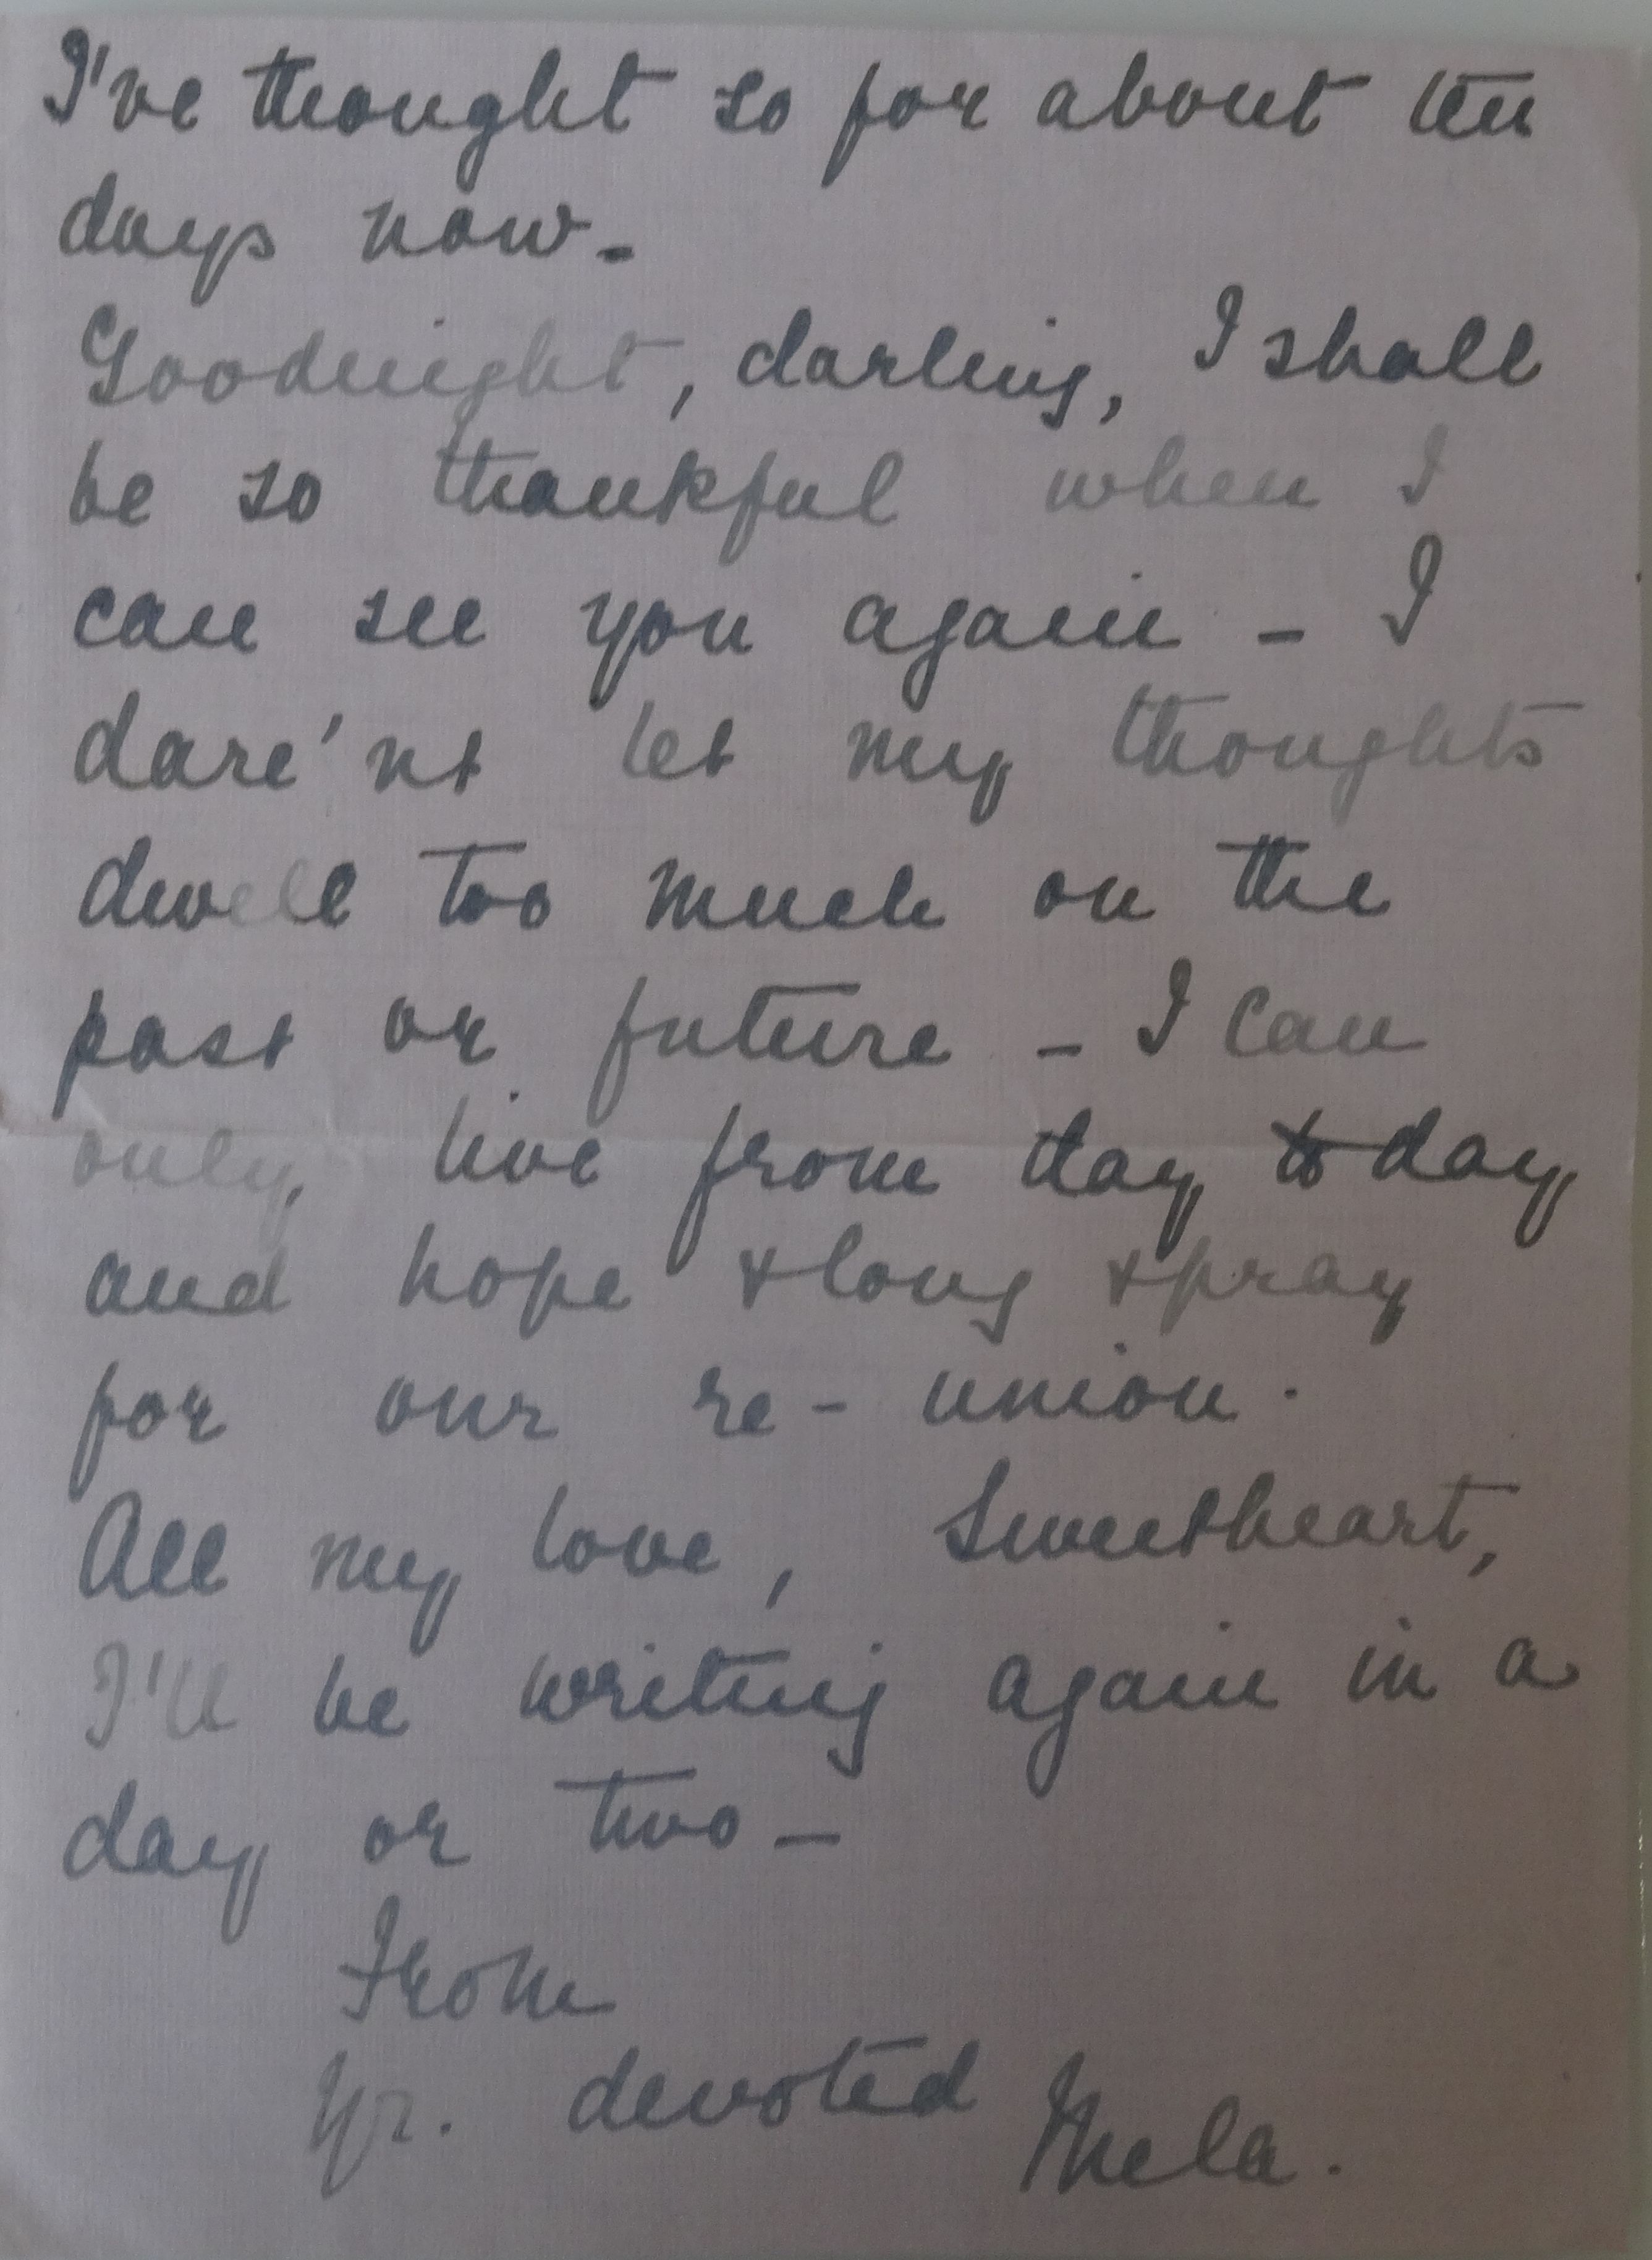 I've thought so for about ten
days now -
Goodnight, darling, I shall
be so thankful when I
can see you again - I
dare'nt let my thoughts
dwell too much on the
past or future - I can
only, live from day to day
and hope & long & pray
for our re-union.
All my love, Sweetheart,
I'll be writing again in a
day or two -
From
Yr. devoted